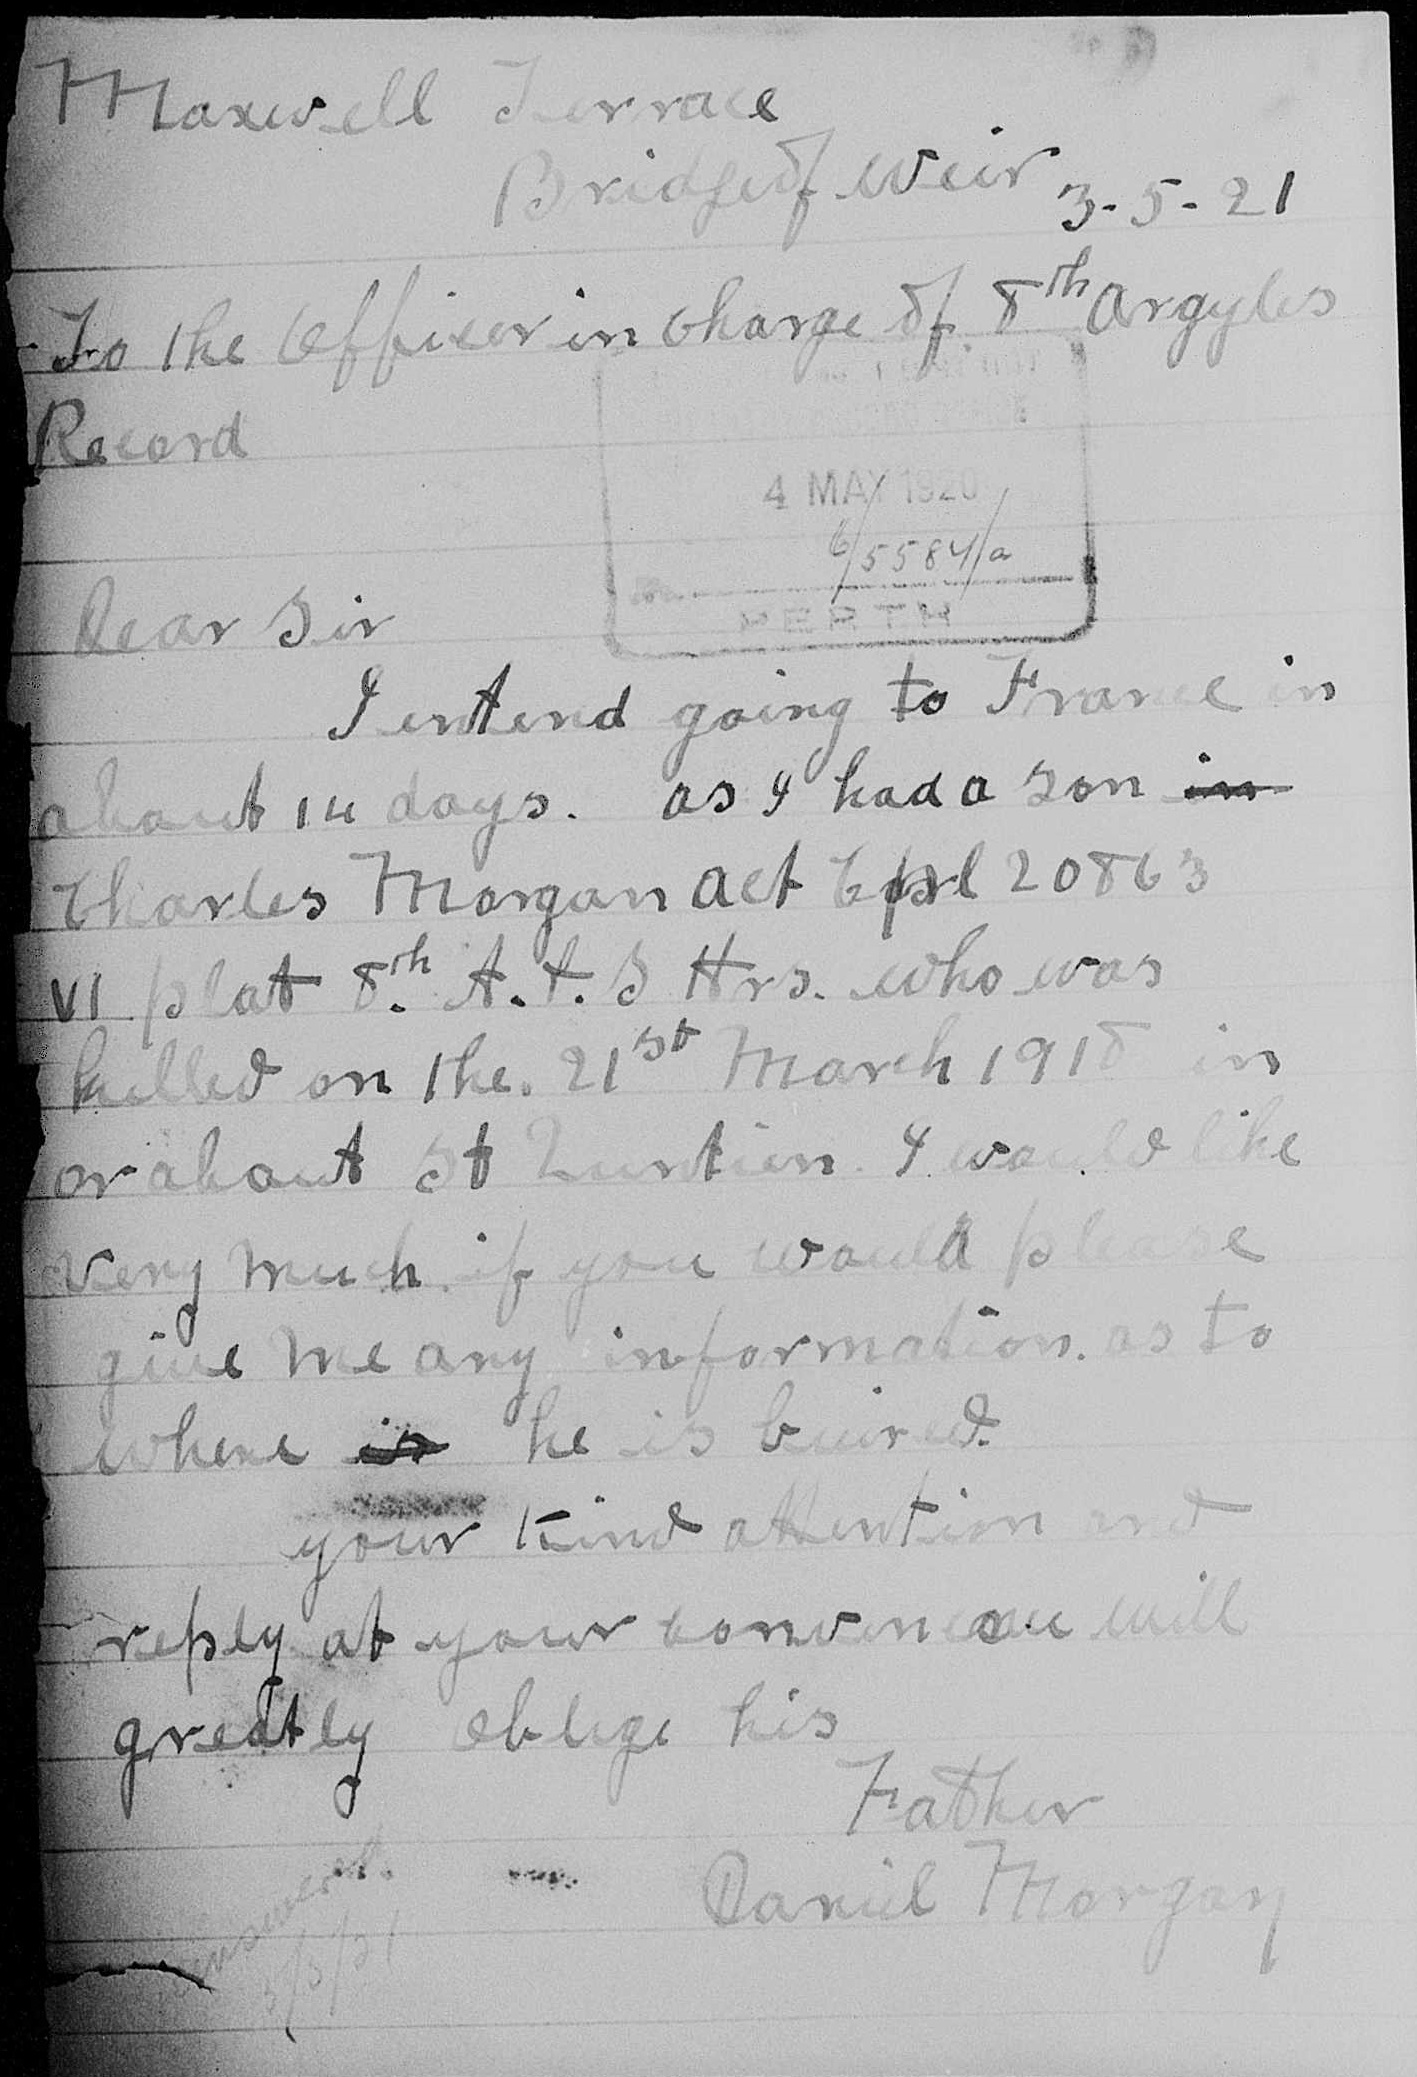 Maxwell Terrace
Bridge of weir 3-5-21
To the Officer in Charge of 8th Argyles
Record
4 MAY 1920
6/5584/a
PERTH
Dear Sir
I entend going to France in
about 14 days. as I had a son in
Charles Morgan Act Cprl 20863
VI plat 8th. A.&.S Hrs. who was
killed on the. 21st March 1918 in
or about St Quntien. I would like
very much if you would please
give me any information. as to
where is he is buired.
your kind attention and
reply at your will
greatly oblige his
Father
Daniel Morgan
answered.